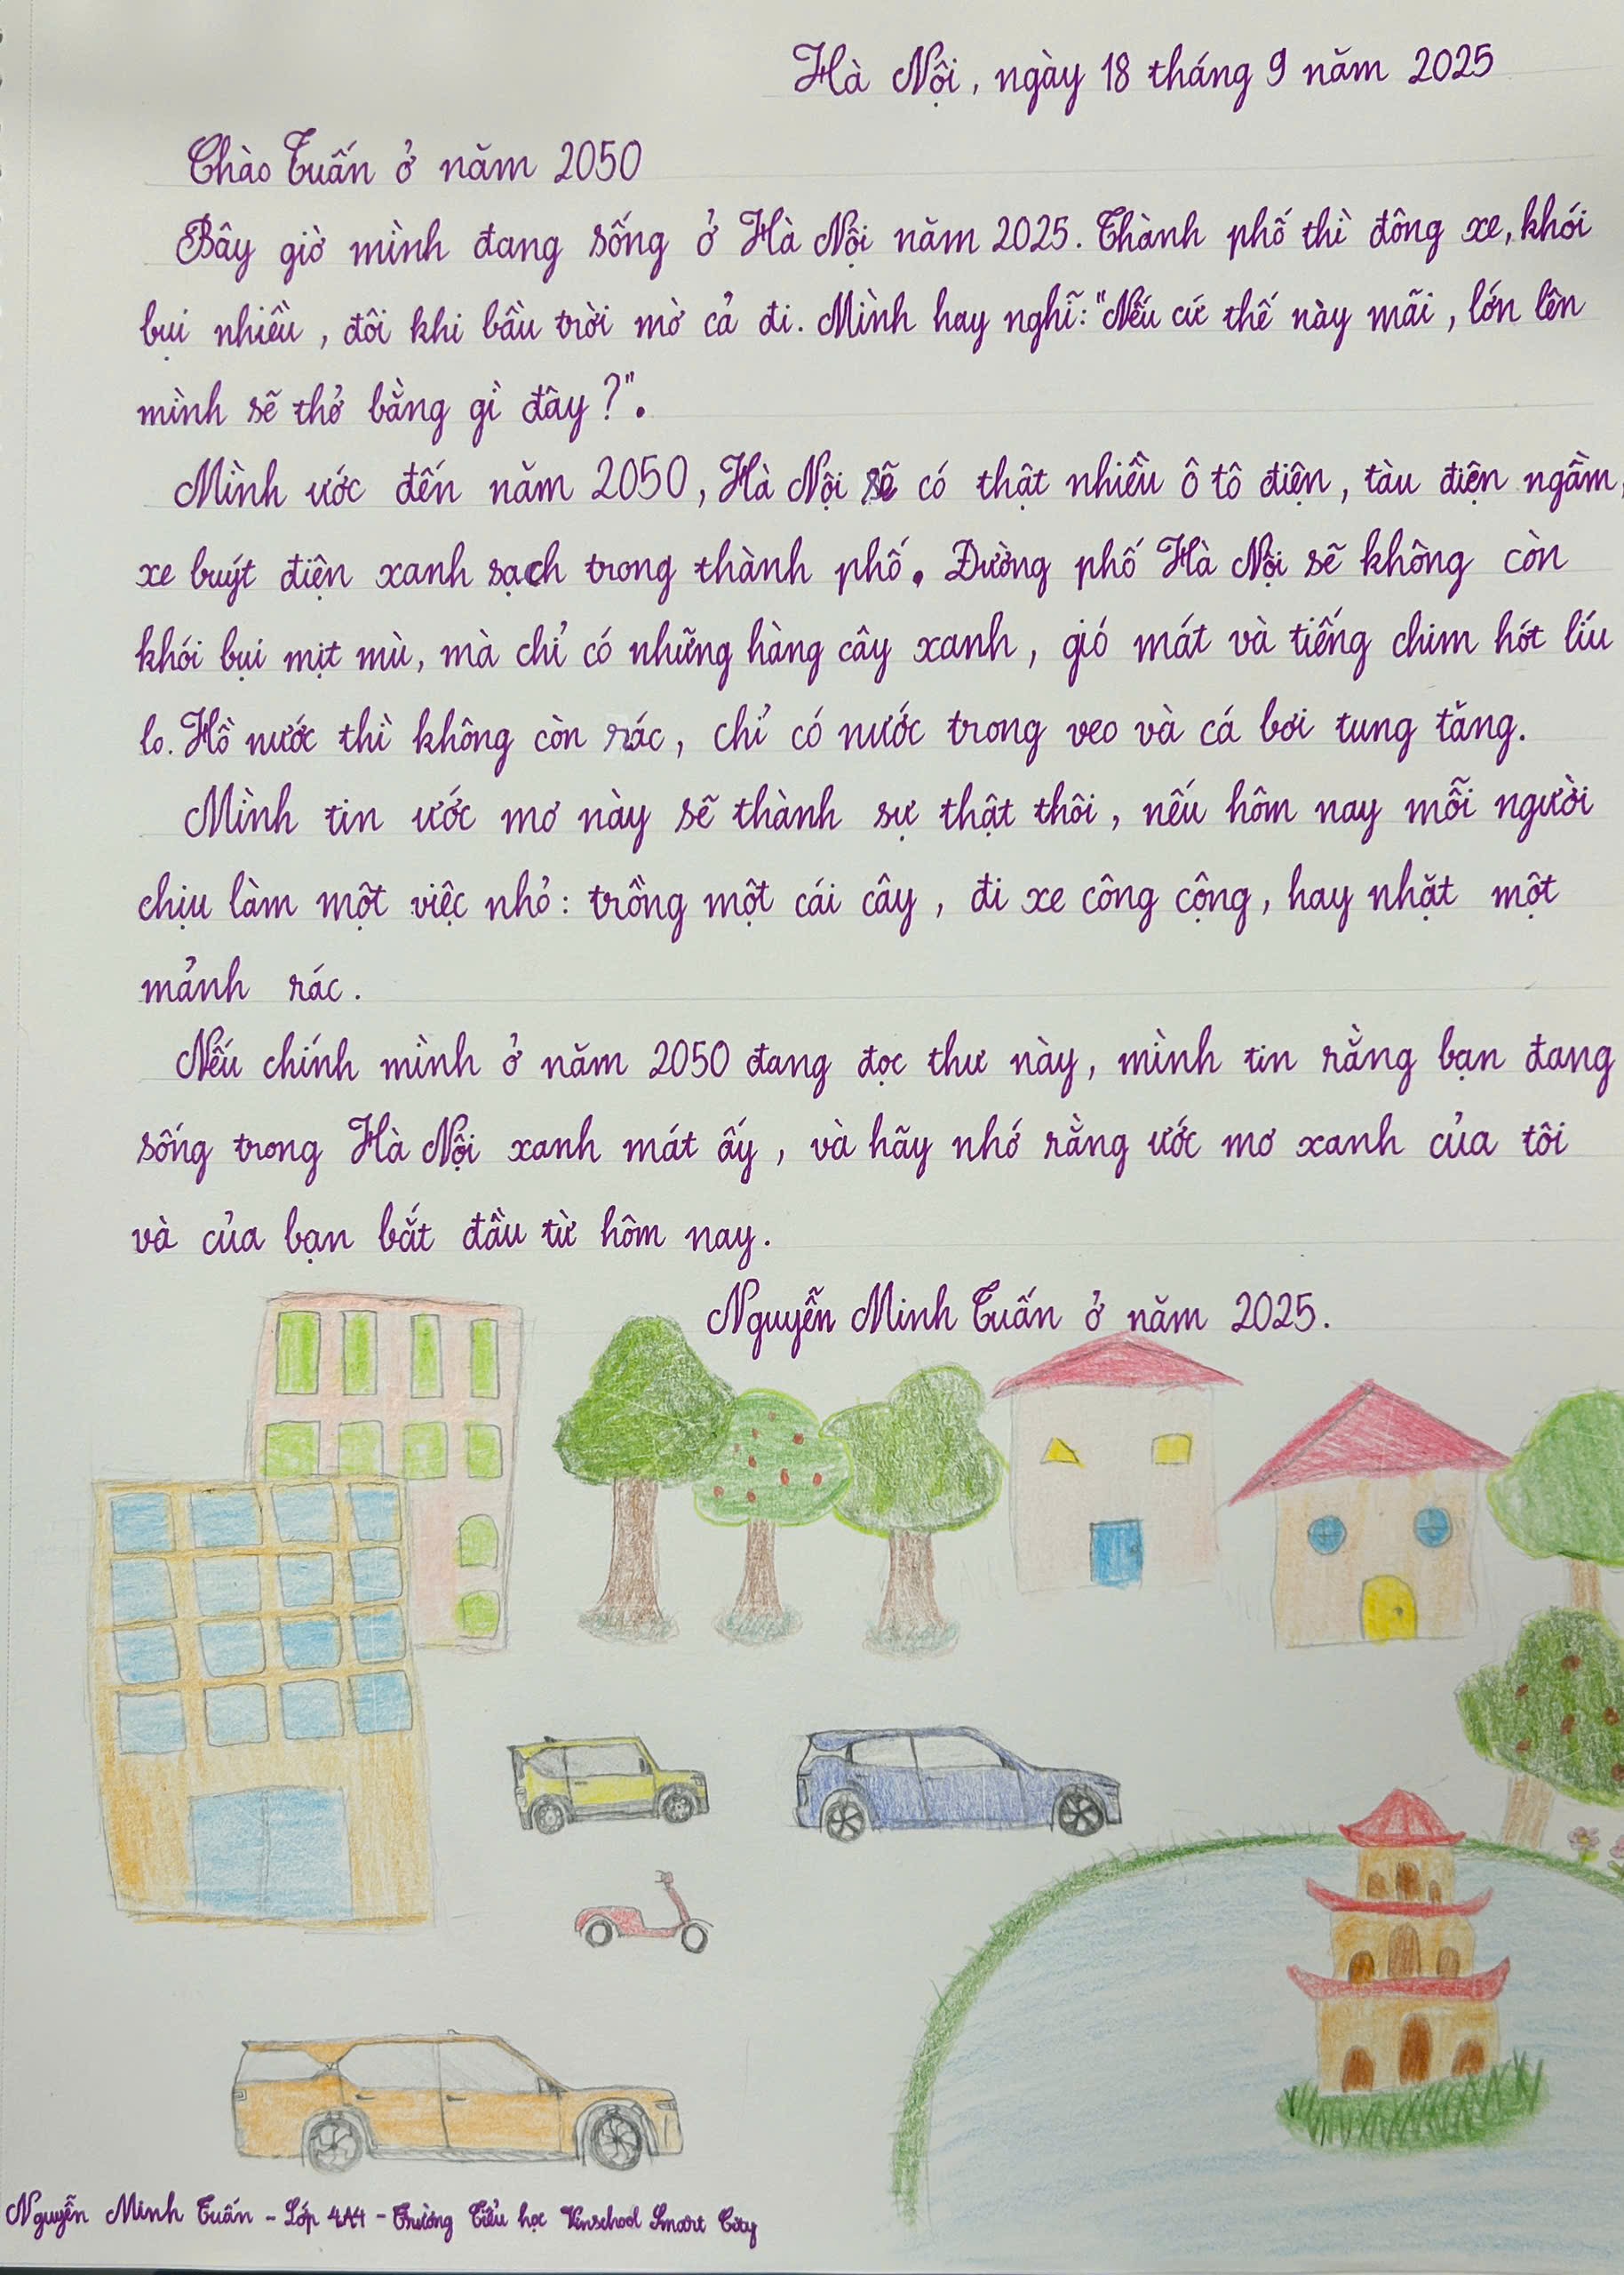 Hà Nội, ngày 18 tháng 9 năm 2025
Chào Tuấn ở năm 2050
Bây giờ mình đang sống ở Hà Nội năm 2025. Thành phố thì đông xe, khói
bụi nhiều, đôi khi bầu trời mờ cả đi. Mình hay nghĩ: "Nếu cứ thế này mãi, lớn lên
mình sẽ thở bằng gì đây?".
Mình ước đến năm 2050, Hà Nội sẽ có thật nhiều ô tô điện, tàu điện ngầm,
xe buýt điện xanh sạch trong thành phố. Đường phố Hà Nội sẽ không còn
khói bụi mịt mù, mà chỉ có những hàng cây xanh, gió mát và tiếng chim hót líu
lo. Hồ nước thì không còn rác, chỉ có nước trong veo và cá bơi tung tăng.
Mình tin ước mơ này sẽ thành sự thật thôi, nếu hôm nay mỗi người
chịu làm một việc nhỏ: trồng một cái cây, đi xe công cộng, hay nhặt một
mảnh rác.
Nếu chính mình ở năm 2050 đang đọc thư này, mình tin rằng bạn đang
sống trong Hà Nội xanh mát ấy, và hãy nhớ rằng ước mơ xanh của tôi
và của bạn bắt đầu từ hôm nay.
Nguyễn Minh Tuấn ở năm 2025.
Nguyễn Minh Tuấn - Lớp 4A4 - Trường Tiểu học Vinschool Smart City